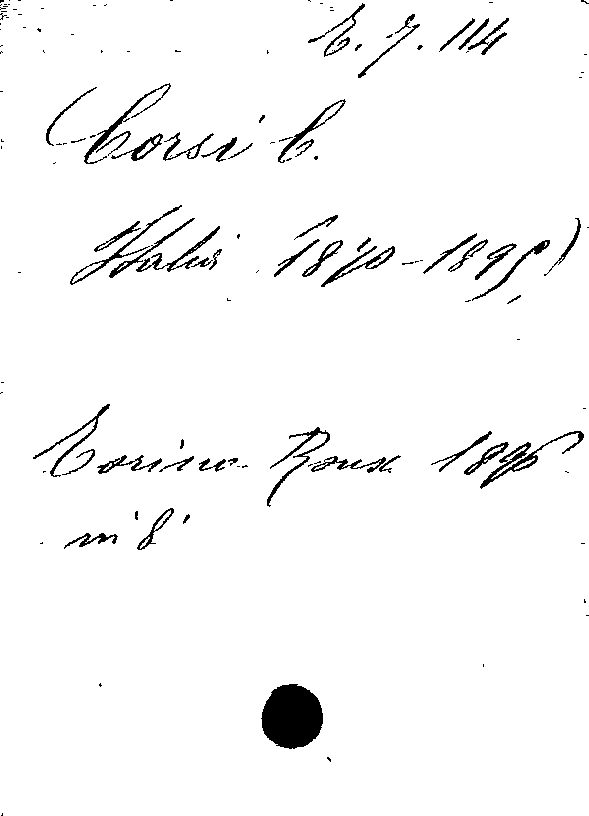 E. 7. 114
(Corsi C.
Italia 1870-1895)
Torino Roux 1896
in 8°